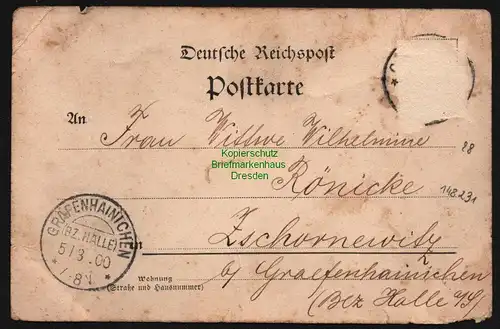 Deutsche Reichspost
Postkarte
An Frau Wittwe Wilhelmine
88
Kopierschutz
Briefmarkenhaus
Dresden
Rönicke
148231
GRÄFENHAINICHEN
(BZ. HALLE)
5/3.00
7-8V.
in Zschornewitz
b/ Graefenhainichen
Wohnung
(Straße und Hausnummer)
(Bez Halle a/S)